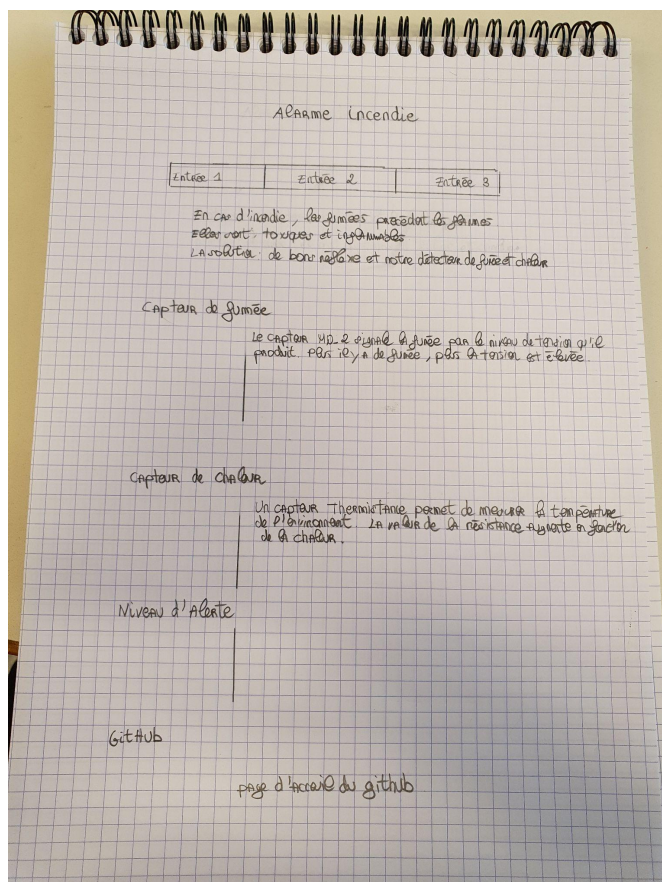 Alarme incendie
Entrée 1 Entrée 2 Entrée 3
En cas d'incendie, les fumées precèdent les flammes
Elles sont toxiques et inflammables
La solution : de bons réflexe et notre détecteur de fumée et chaleur
Capteur de fumée
Le capteur MQ_2 signale la fumée par le niveau de tension qu'il
produit. Plus il y a de fumée, plus la tension est élevée.
Capteur de chaleur
Un capteur Thermistance permet de mesurer la température
de l'environnent. La valeur de la résistance augmente en fonction
de la chaleur.
Niveau d'Alerte
GitHub
page d'accueil du github